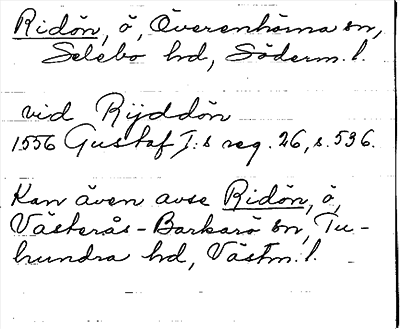 Ridön, ö, Överenhörna sn,
Selebo hd, Söderm. l.
vid Rijddön
1556 Gustaf I:s reg. 26, s. 536.
Kan även avse Ridön, ö,
Västerås-Barkarö sn, Tu-
hundra hd, Västm. l.